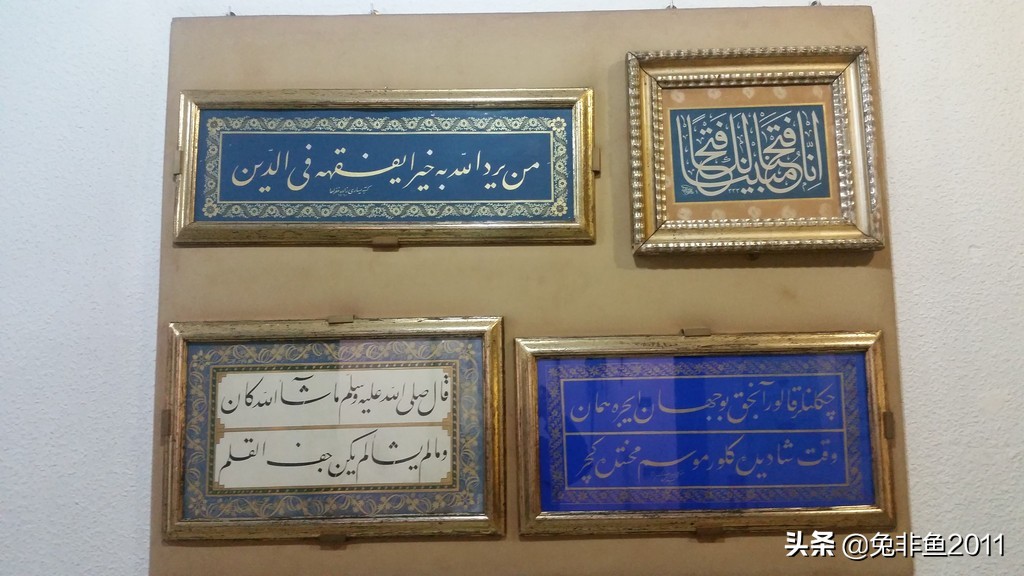 من يرد الله به خيرا يفقهه فى الدين
انا فتحنا لك فتحا مبينا
قال صلى الله عليه وسلم ما شآ الله كان
وما لم يشا لم يكن جف القلم
قالور آنجق بو جهان ايچره همان
وقت شادى ده كلور موسم محنت ده كچر
头条 @兔非鱼2011